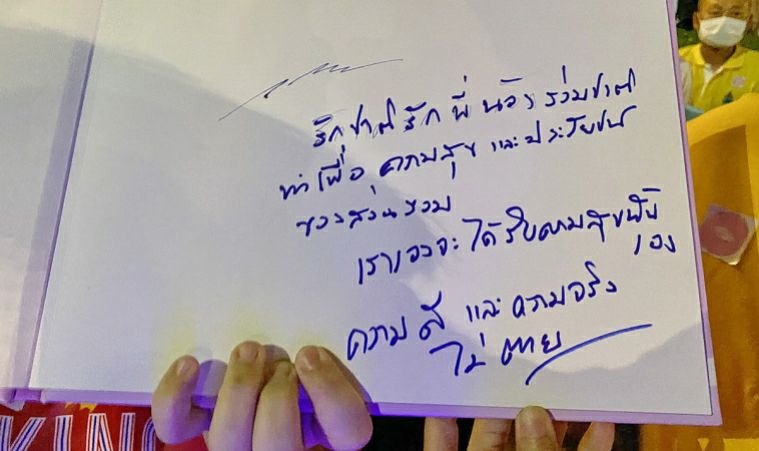 รักชาติ รัก พี่ น้อง ร่วมชาติ
ทำ เพื่อ ความสุข และประโยชน์
ของส่วนรวม
เราเองจะได้รับความสุขนั้น
เอง
ความ ดี และ ความจริง
ไม่ ตาย
KING